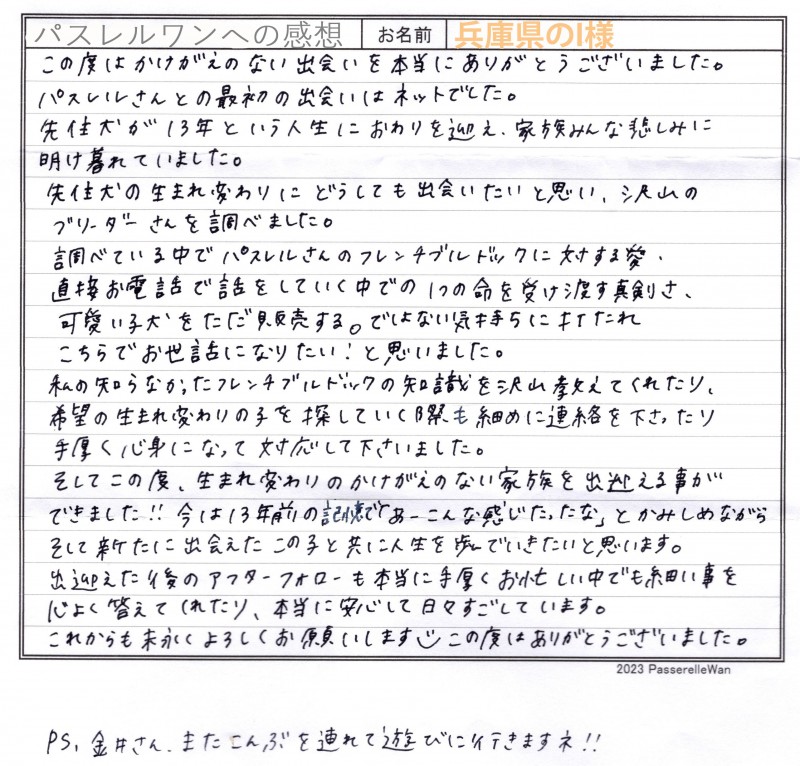 パスレルワンへの感想 お名前 兵庫県のI様
この度はかけがえのない出会いを本当にありがとうございました。
パスレルさんとの最初の出会いはネットでした。
先住犬が13年という人生におわりを迎え、家族みんな悲しみに
明け暮れていました。
先住犬の生まれ変わりにどうしても出会いたいと思い、沢山の
ブリーダーさんを調べました。
調べている中でパスレルさんのフレンチブルドックに対する愛、
直接お電話で話をしていく中での1つの命を受け渡す真剣さ、
可愛い子犬をただ販売する。ではない気持ちに打たれ
こちらでお世話になりたい!と思いました。
私の知らなかったフレンチブルドックの知識を沢山教えてくれたり、
希望の生まれ変わりの子を探していく際も細めに連絡を下さったり
手厚く心身になって対応して下さいました。
そしてこの度、生まれ変わりのかけがえのない家族を出迎える事が
できました!! 今は13年前の記憶で「あーこんな感じだったな」とかみしめながら
そして新たに出会えたこの子と共に人生を歩んでいきたいと思います。
出迎えた後のアフターフォローも本当に手厚くお忙しい中でも細い事を
心よく答えてくれたり、本当に安心して日々すごしています。
これからも末永くよろしくお願いします この度はありがとうございました。
2023 PasserelleWan
PS, 金井さん、またこんぶを連れて遊びに行きますネ!!